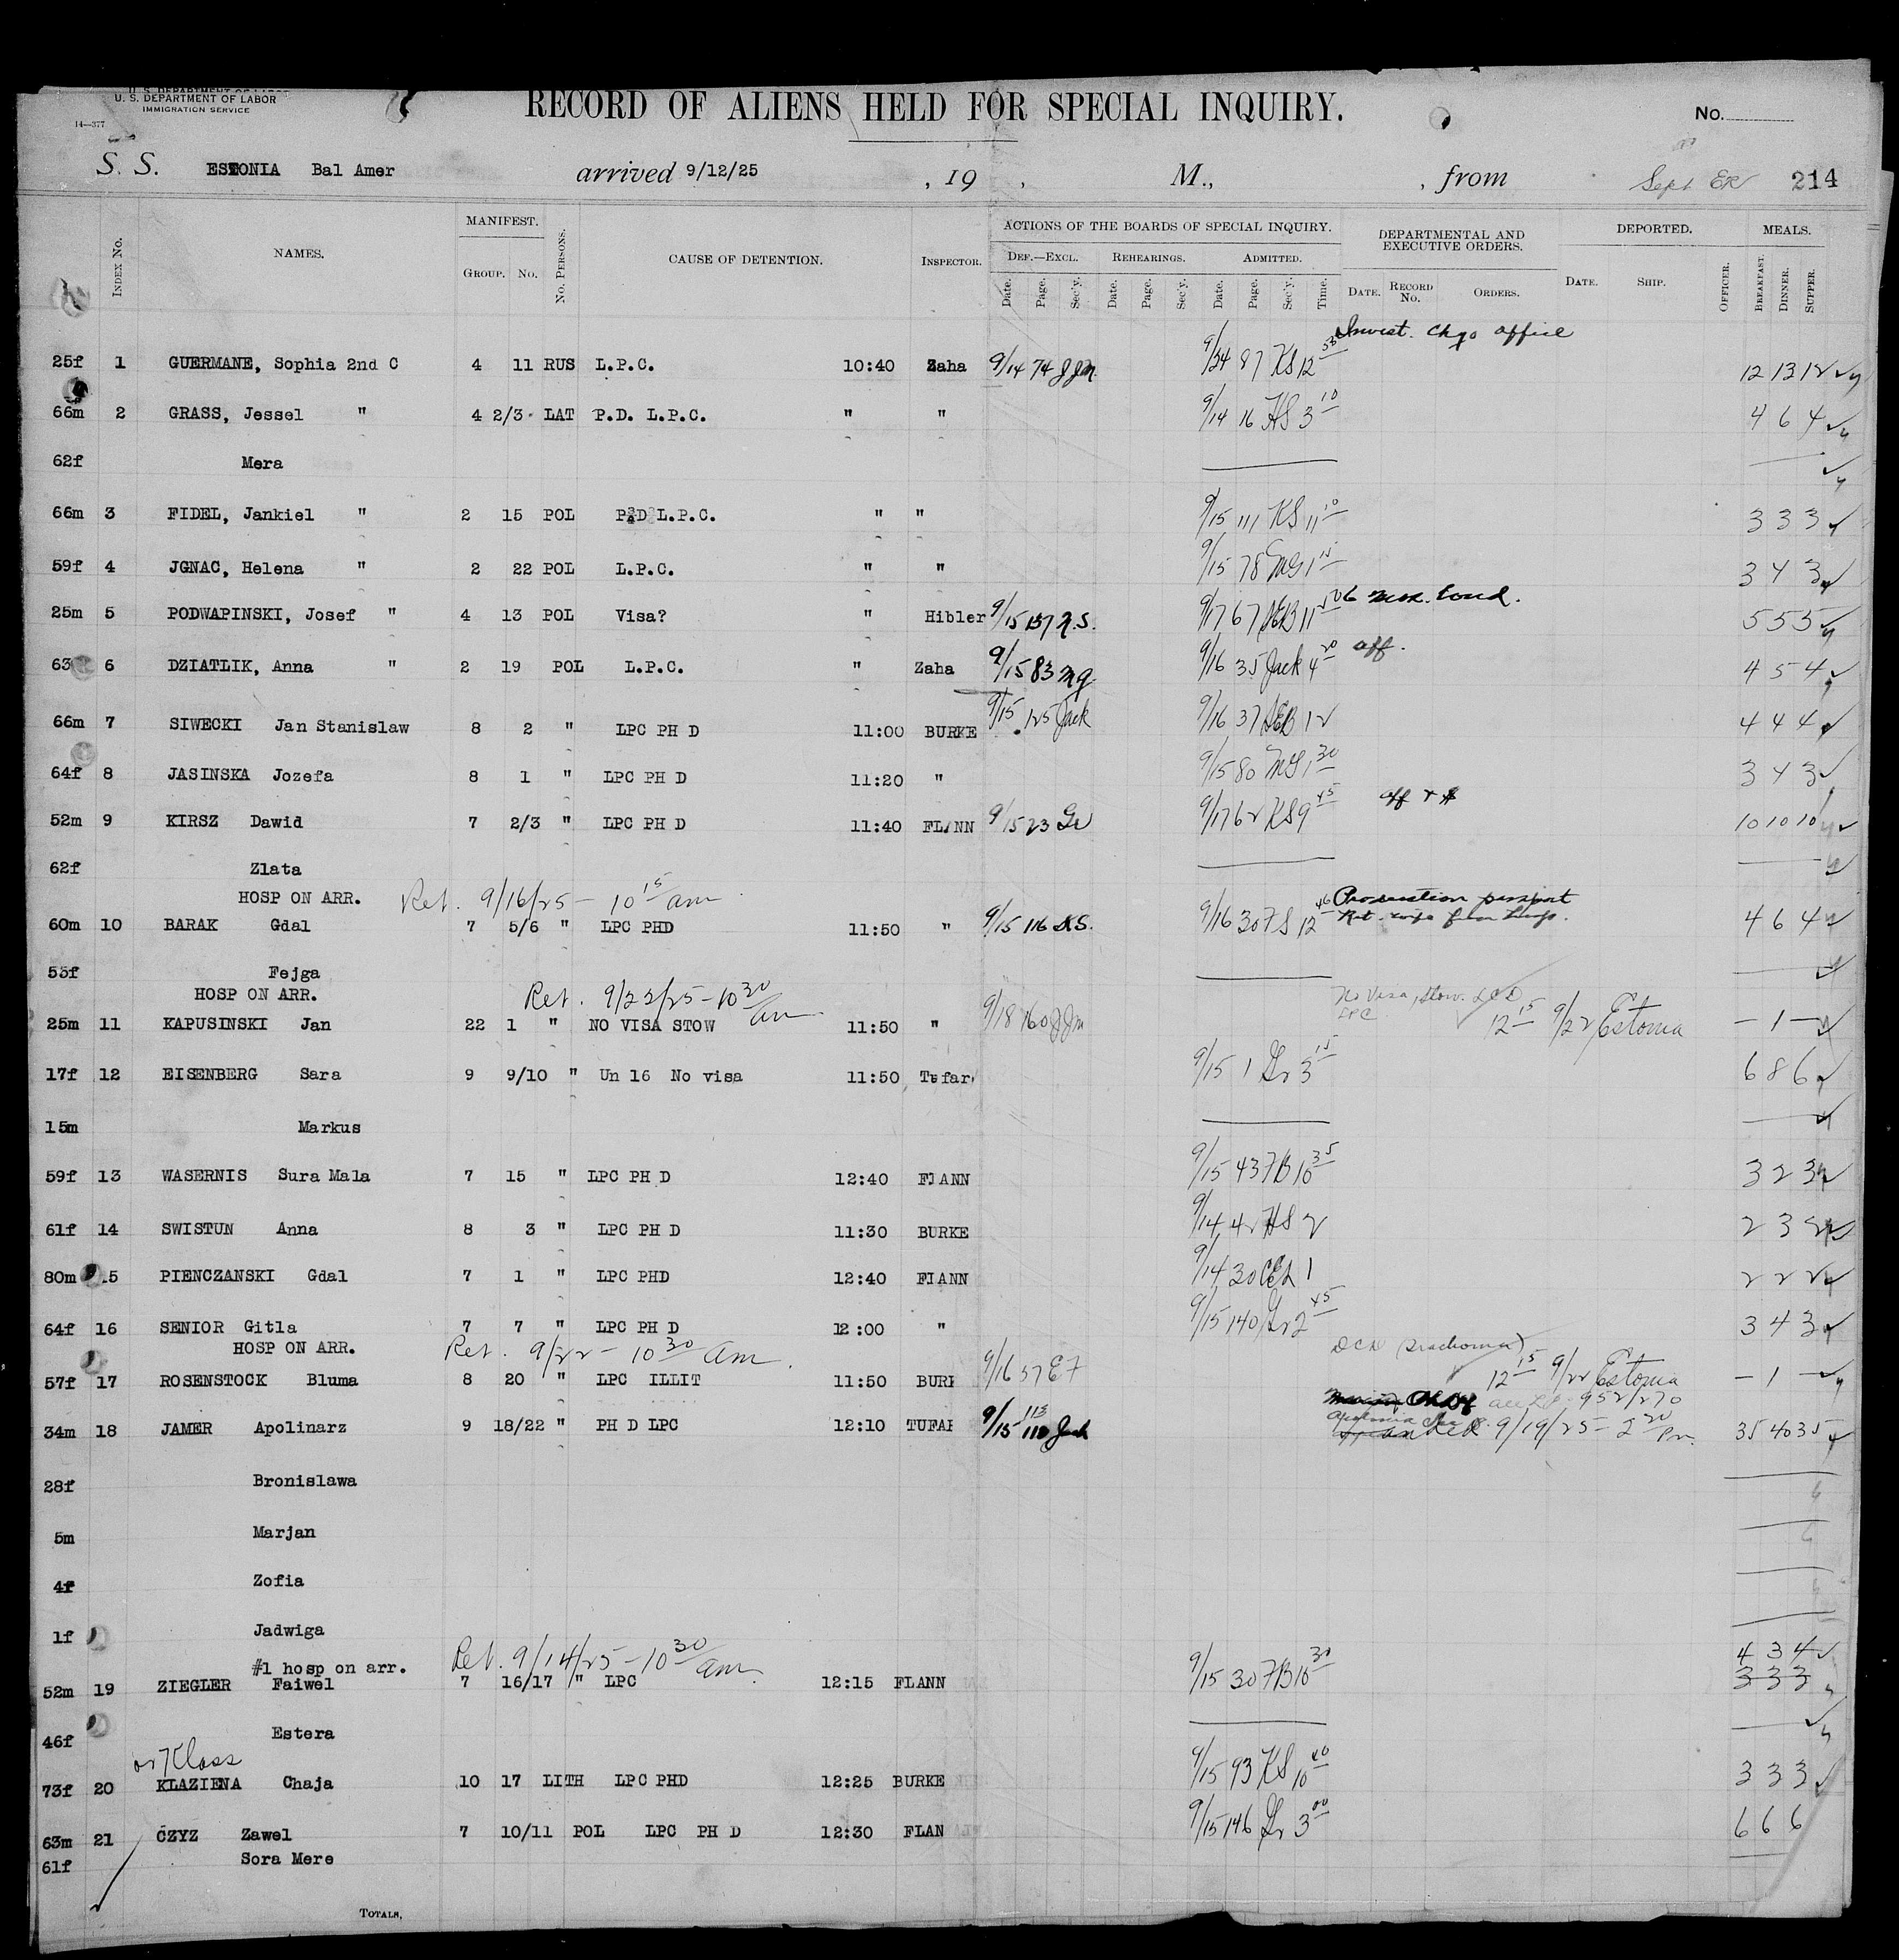 U. S. DEPARTMENT OF LABOR
IMMIGRATION SERVICE
14—377
RECORD OF ALIENS HELD FOR SPECIAL INQUIRY.
No.
S. S. ESTONIA Bal Amer arrived 9/12/25 , 19 , M., , from Sept 214
INDEX No. NAMES. MANIFEST. GROUP. No. No. PERSONS. CAUSE OF DETENTION. INSPECTOR. ACTIONS OF THE BOARDS OF SPECIAL INQUIRY. DEF.—EXCL. Date. Page. Sec'y. REHEARINGS. Date. Page. Sec'y. ADMITTED. Date. Page. Sec'y. Time. DEPARTMENTAL AND EXECUTIVE ORDERS. DATE. RECORD No. ORDERS. DEPORTED. DATE. SHIP. OFFICER. MEALS. BREAKFAST. DINNER. SUPPER.
Invest. Chgo office
25f 1 GUERMANE, Sophia 2nd C 4 11 RUS L.P.C. 10:40 Zaha 9/14 74 JJM. 9/24 87 KS 12 53 12 13 12
66m 2 GRASS, Jessel " 4 2/3 LAT P.D. L.P.C. " " 9/14 16 HS 3 10 4 6 4
62f Mera
66m 3 FIDEL, Jankiel " 2 15 POL P.D L.P.C. " " 9/15 111 KS 11 10 3 3 3
59f 4 JGNAC, Helena " 2 22 POL L.P.C. " " 9/15 78 MG 1 15 3 4 3
25m 5 PODWAPINSKI, Josef " 4 13 POL Visa? " Hibler 9/15 137 9/17 67 11 6 mos. 5 5 5
63 6 DZIATLIK, Anna " 2 19 POL L.P.C. " Zaha 9/15 83 mg 9/16 35 Jack 4 20 aff. 4 5 4
66m 7 SIWECKI Jan Stanislaw 8 2 " LPC PH D 11:00 BURKE 9/15 125 Jack 9/16 37 12 4 4 4
64f 8 JASINSKA Jozefa 8 1 " LPC PH D 11:20 " 9/15 80 MG 1 30 3 4 3
52m 9 KIRSZ Dawid 7 2/3 " LPC PH D 11:40 FLANN 9/15 23 9/17 62 KS 9 45 aff + $ 10 10 10
62f Zlata
HOSP ON ARR. Ret. 9/16/25 - 10 15 am
60m 10 BARAK Gdal 7 5/6 " LPC PHD 11:50 " 9/15 116 KS. 9/16 30 FS 12 46 passport 4 6 4
53f Fejga
HOSP ON ARR. Ret. 9/22/25 - 10 30 am
25m 11 KAPUSINSKI Jan 22 1 " NO VISA STOW 11:50 " 9/18 160 JJM No Visa, Stow. LPC 12 15 9/22 Estonia - 1 -
17f 12 EISENBERG Sara 9 9/10 " Un 16 No visa 11:50 Tufar 9/15 1 3 15 6 8 6
15m Markus
59f 13 WASERNIS Sura Mala 7 15 " LPC PH D 12:40 FLANN 9/15 43 FB 10 35 3 2 3
61f 14 SWISTUN Anna 8 3 " LPC PH D 11:30 BURKE 9/14 42 HS 2 2 3 2
80m 15 PIENCZANSKI Gdal 7 1 " LPC PHD 12:40 FLANN 9/14 30 1 2 2 2
64f 16 SENIOR Gitla 7 7 " LPC PH D 12:00 " 9/15 140 2 45 3 4 3
HOSP ON ARR. Ret. 9/22 - 10 30 am.
57f 17 ROSENSTOCK Bluma 8 20 " LPC ILLIT 11:50 BURK 9/16 57 EF DCD (Trachoma) 12 15 9/22 Estonia - 1 -
34m 18 JAMER Apolinarz 9 18/22 " PH D LPC 12:10 TUFAR 9/15 113 Jack 952/270 9/19/25 - 2 20 Pm. 35 40 35
28f Bronislawa
5m Marjan
4f Zofia
1f Jadwiga
#1 hosp on arr. Ret. 9/14/25 - 10 30 am 4 3 4
52m 19 ZIEGLER Faiwel 7 16/17 " LPC 12:15 FLANN 9/15 30 FB 10 30 3 3 3
46f Estera
or Klass
73f 20 KLAZIENA Chaja 10 17 LITH LPC PHD 12:25 BURKE 9/15 93 KS 10 40 3 3 3
63m 21 CZYZ Zawel 7 10/11 POL LPC PH D 12:30 FLAN 9/15 146 3 00 6 6 6
61f Sora Mere
TOTALS,